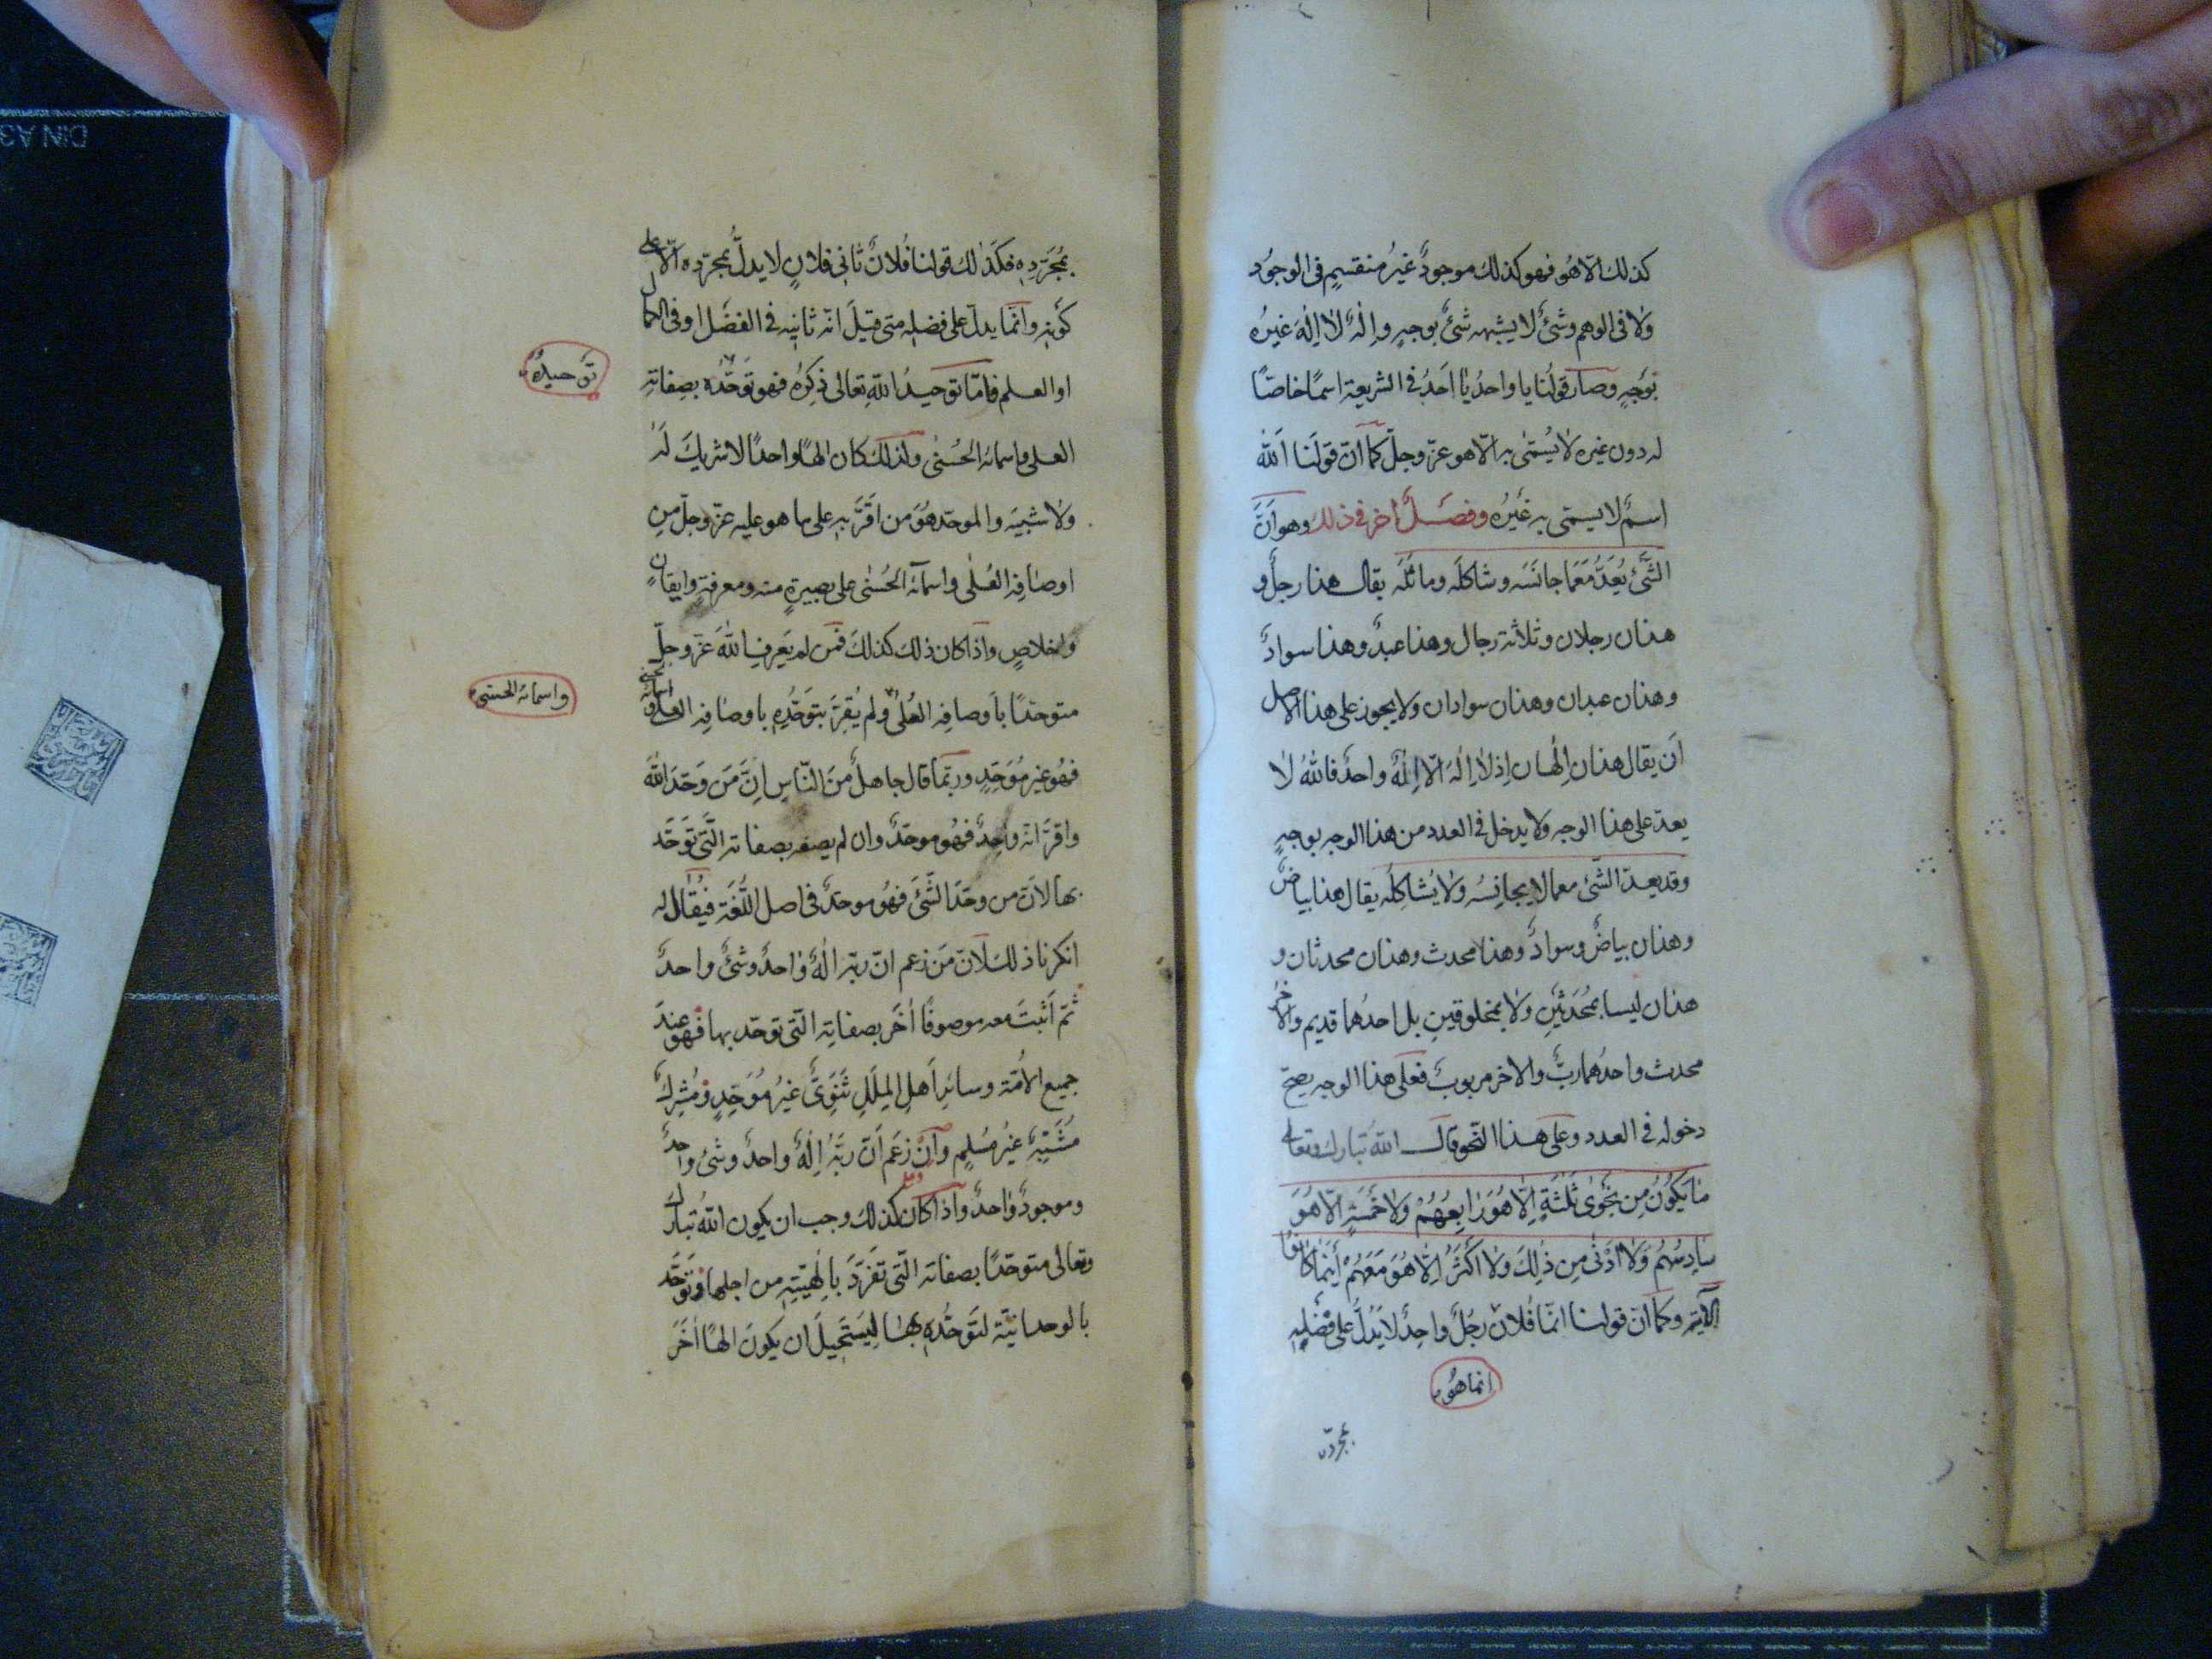 كذلك الّا هُو فهو كذلك موجودٌ غيرُ منقسمٍ فى الوجوُد
ولا فى الوهم وشئٌ لا يشبهه شئٌ بوجهٍ واِلٰهٌ لا اِلٰهَ غيرُه
بوَجهٍ وصار قولُنا يا واحدُ يا اَحَدُ فى الشريعة اسمًا خاصًا
له دون غيره لا يُسمّى به الّا هو عزّ وجلّ كما انّ قولَنا اَللّه
اسمٌ لا يسمّى به غَيرُه وفصَلٌ اٰخر فى ذلك وهو اَنَّ
الشَّئَ يُعَدُّ مَعَ ما جانَسَه وشاكلَه وماثَلَه يقال هذا رجلٌ و
هذان رجلان وثلاثة رجال وهذا عبدٌ وهذا سوادٌ
وهذان عبدان وهذان سوادان ولا يجوز على هذا الاصل
اَن يقال هذان اِلٰهان اِذ لا اِلٰهَ الّا اِلٰهٌ واحدٌ فاللّهُ لا
يعدّ على هذا الوجه ولا يدخل فى العدد من هذا الوجه بوجهٍ
وقد يعدّ الشّئ مع ما لا يجانِسُه ولا يُشاكلُه يقال هذا بياضٌ
وهذان بياضٌ وسوادٌ وهذا محدث وهذان محدثان و
هذان ليسا بمُحَدثَينِ ولا بمخلوقينِ بل احدُهما قديم والاٰخر
محدث واحدُهما ربٌّ والاخر مربوبٌ فعلى هذا الوجه يصحّ
دخوله فى العدد وعلى هذا النّحو قال اللّه تبارك وتعالى
مٰا يَكُوُنُ مِن نَجْوٰى ثَلٰثَةٍ اِلّٰا هُوَ رٰابِعُهُمْ وَلٰا خَمْسَةٍ اِلّا هُوَ
سٰادِسُهُم وَلٰا اَدْنٰى مِن ذٰلِكَ وَلٰا اَكْثَرَ اِلّٰا هُوَ مَعَهُمْ أَينَمٰا كٰانُوا
الآية وكما انّ قولنا انّما فُلان رجُلٌ واحِدٌ لا يَدُلُّ على فَضلِهِ
انما هُو
بمجرّده
بمُجَرَّدِهِ فكَذٰلك قولنا فُلانٌ ثانى فلانٍ لا يدلُّ بمجرّده الّا على
كَونِه وانّما يدلّ على فضله متى قيلَ انّه ثانيه فى الفضَل او فى الكمال
او العلم فامّا توحيدُ اللّهِ تعالى ذِكرُه فهو تَوَحّدُه بصِفاتِهِ
توحيدُه
العلى واسمائه الحُسنٰى ولذلك كان الهًا واحدًا لا شريكَ لَهُ
ولا شَبيَه والموحّد هُوَ من اَقَرَّ بِه على ما هو عليه عزّ وجلّ مِن
اوصافِه العُلٰى واسمآئه الحُسنٰى على بصيرةٍ منه ومعرفةٍ وايقانٍ
واخلاصٍ واذا كان ذلك كذلكَ فمَن لم يَعرِفِ اللّهَ عزّ وجلّ
متوحّدًا باَوصافِه العُلٰى ولم يُقِرَّ بتَوَحُّدِهِ باوصافِه العلى و اسمائه الحسنى
واسمائه الحسنى
فهُو غير مُوَحّدٍ وربّما قال جاهلٌ مِنَ النّاسِ اِنَّ مَن وَحّدَ اللّهَ
واقرّ انّه واحِدٌ فهُو موحّدٌ وان لم يصفه بصفاته الَّتى تَوَحَّدَ
بها لانّ من وحّدَ الشَّئَ فهُو موحدٌ فى اصل اللُّغة فيُقالُ له
انكرنا ذلك لانّ مَن زعم انّ ربّه اِلٰهٌ واحدٌ وشئٌ واحدٌ
ثمّ اَثبتَ معه موصوفًا اٰخَر بصفاتِهِ الّتى توحّد بها فهو عندَ
جميع الامُّة وسائر اَهلِ المِلَلِ ثَنَوِىٌّ غيُر مُوَحِّدٍ ومُشِركٌ
مُشَبِّهٌ غيُر مُسلِمٍ وَاِنْ زعَم اَنَّ ربَّهُ اِلٰهٌ واحدٌ وشئ واحدٌ
وموجودٌ واحدٌ واذا كان كذلك وجب ان يكون اللّهُ تبارك
وتعالى متوحّدًا بصفاته الّتى تفَرّدَ بالٰهيّتِهِ مِن اجلها وتَوَحَّدَ
بالوحدانيّة لتَوَحُّدِهِ بهٰا لِيَستَحيلَ ان يكونَ الهًا اٰخَرَ